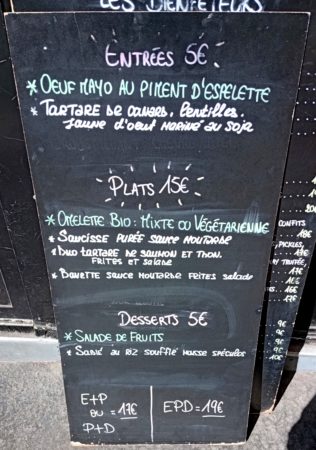 LES BIENFAITEURS
ENTRÉES 5€
* OEUF MAYO AU PIMENT D'ESPELETTE
* TARTARE DE CANARD, LENTILLES,
JAUNE D'OEUF MARINÉ AU SOJA
PLATS 15€
* OMELETTE BIO : MIXTE OU VÉGÉTARIENNE
* SAUCISSE PURÉE SAUCE MOUTARDE
* DUO TARTARE DE SAUMON ET THON.
FRITES ET SALADE
* BAVETTE SAUCE MOUTARDE FRITES SALADE
DESSERTS 5€
* SALADE DE FRUITS
* SABLÉ AU RIZ SOUFFLÉ MOUSSE SPÉCULOS
E+P
OU = 17€
P+D
EPD = 19€
CONFITS
18€
PICKLES,
19€
TRUFFÉE,
17€
11€
16€
17€
9€
9€
9€
9€
10€